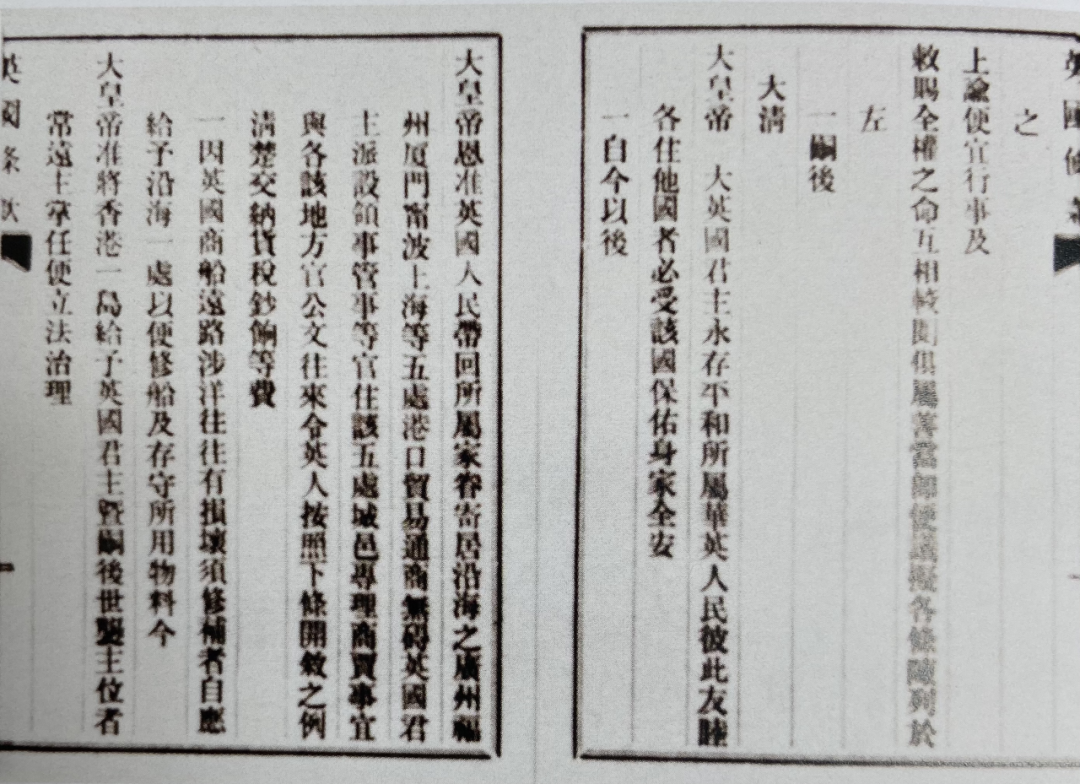 英國條款
之
上諭便宜行事及
敕賜全權之命互相較閱俱屬善當即便議擬各條陳列於
左
一嗣後
大清
大皇帝　大英國君主永存平和所屬華英人民彼此友睦
各住他國者必受該國保佑身家全安
一自今以後
大皇帝恩准英國人民帶同所屬家眷寄居沿海之廣州福
州厦門甯波上海等五處港口貿易通商無礙英國君
主派設領事管事等官住該五處城邑專理商賈事宜
與各該地方官公文往來令英人按照下條開敘之例
清楚交納貨稅鈔餉等費
一因英國商船遠路涉洋往往有損壞須修補者自應
給予沿海一處以便修船及存守所用物料今
大皇帝准將香港一島給予英國君主暨嗣後世襲主位者
常遠主掌任便立法治理
英國条款